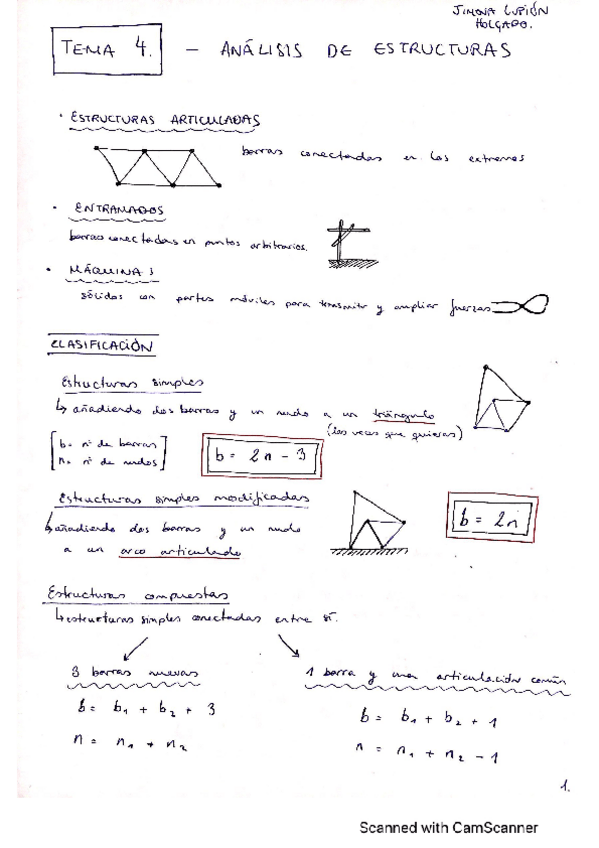 JIMENA LUPIÓN
HOLGADO.
TEMA 4. - ANÁLISIS DE ESTRUCTURAS
· ESTRUCTURAS ARTICULADAS
barras conectadas en los extremos
· ENTRAMADOS
barras conectadas en puntos arbitrarios.
· MÁQUINAS
sólidos con partes móviles para transmitir y ampliar fuerzas
CLASIFICACIÓN
Estructuras simples
↳ añadiendo dos barras y un nudo a un triángulo
(las veces que quieras)
b = nº de barras
n = nº de nudos
b = 2n - 3
Estructuras simples modificadas
↳ añadiendo dos barras y un nudo
a un arco articulado
b = 2n
Estructuras compuestas
↳ estructuras simples conectadas entre sí.
3 barras nuevas
b = b1 + b2 + 3
n = n1 + n2
1 barra y una articulación común
b = b1 + b2 + 1
n = n1 + n2 - 1
1.
Scanned with CamScanner